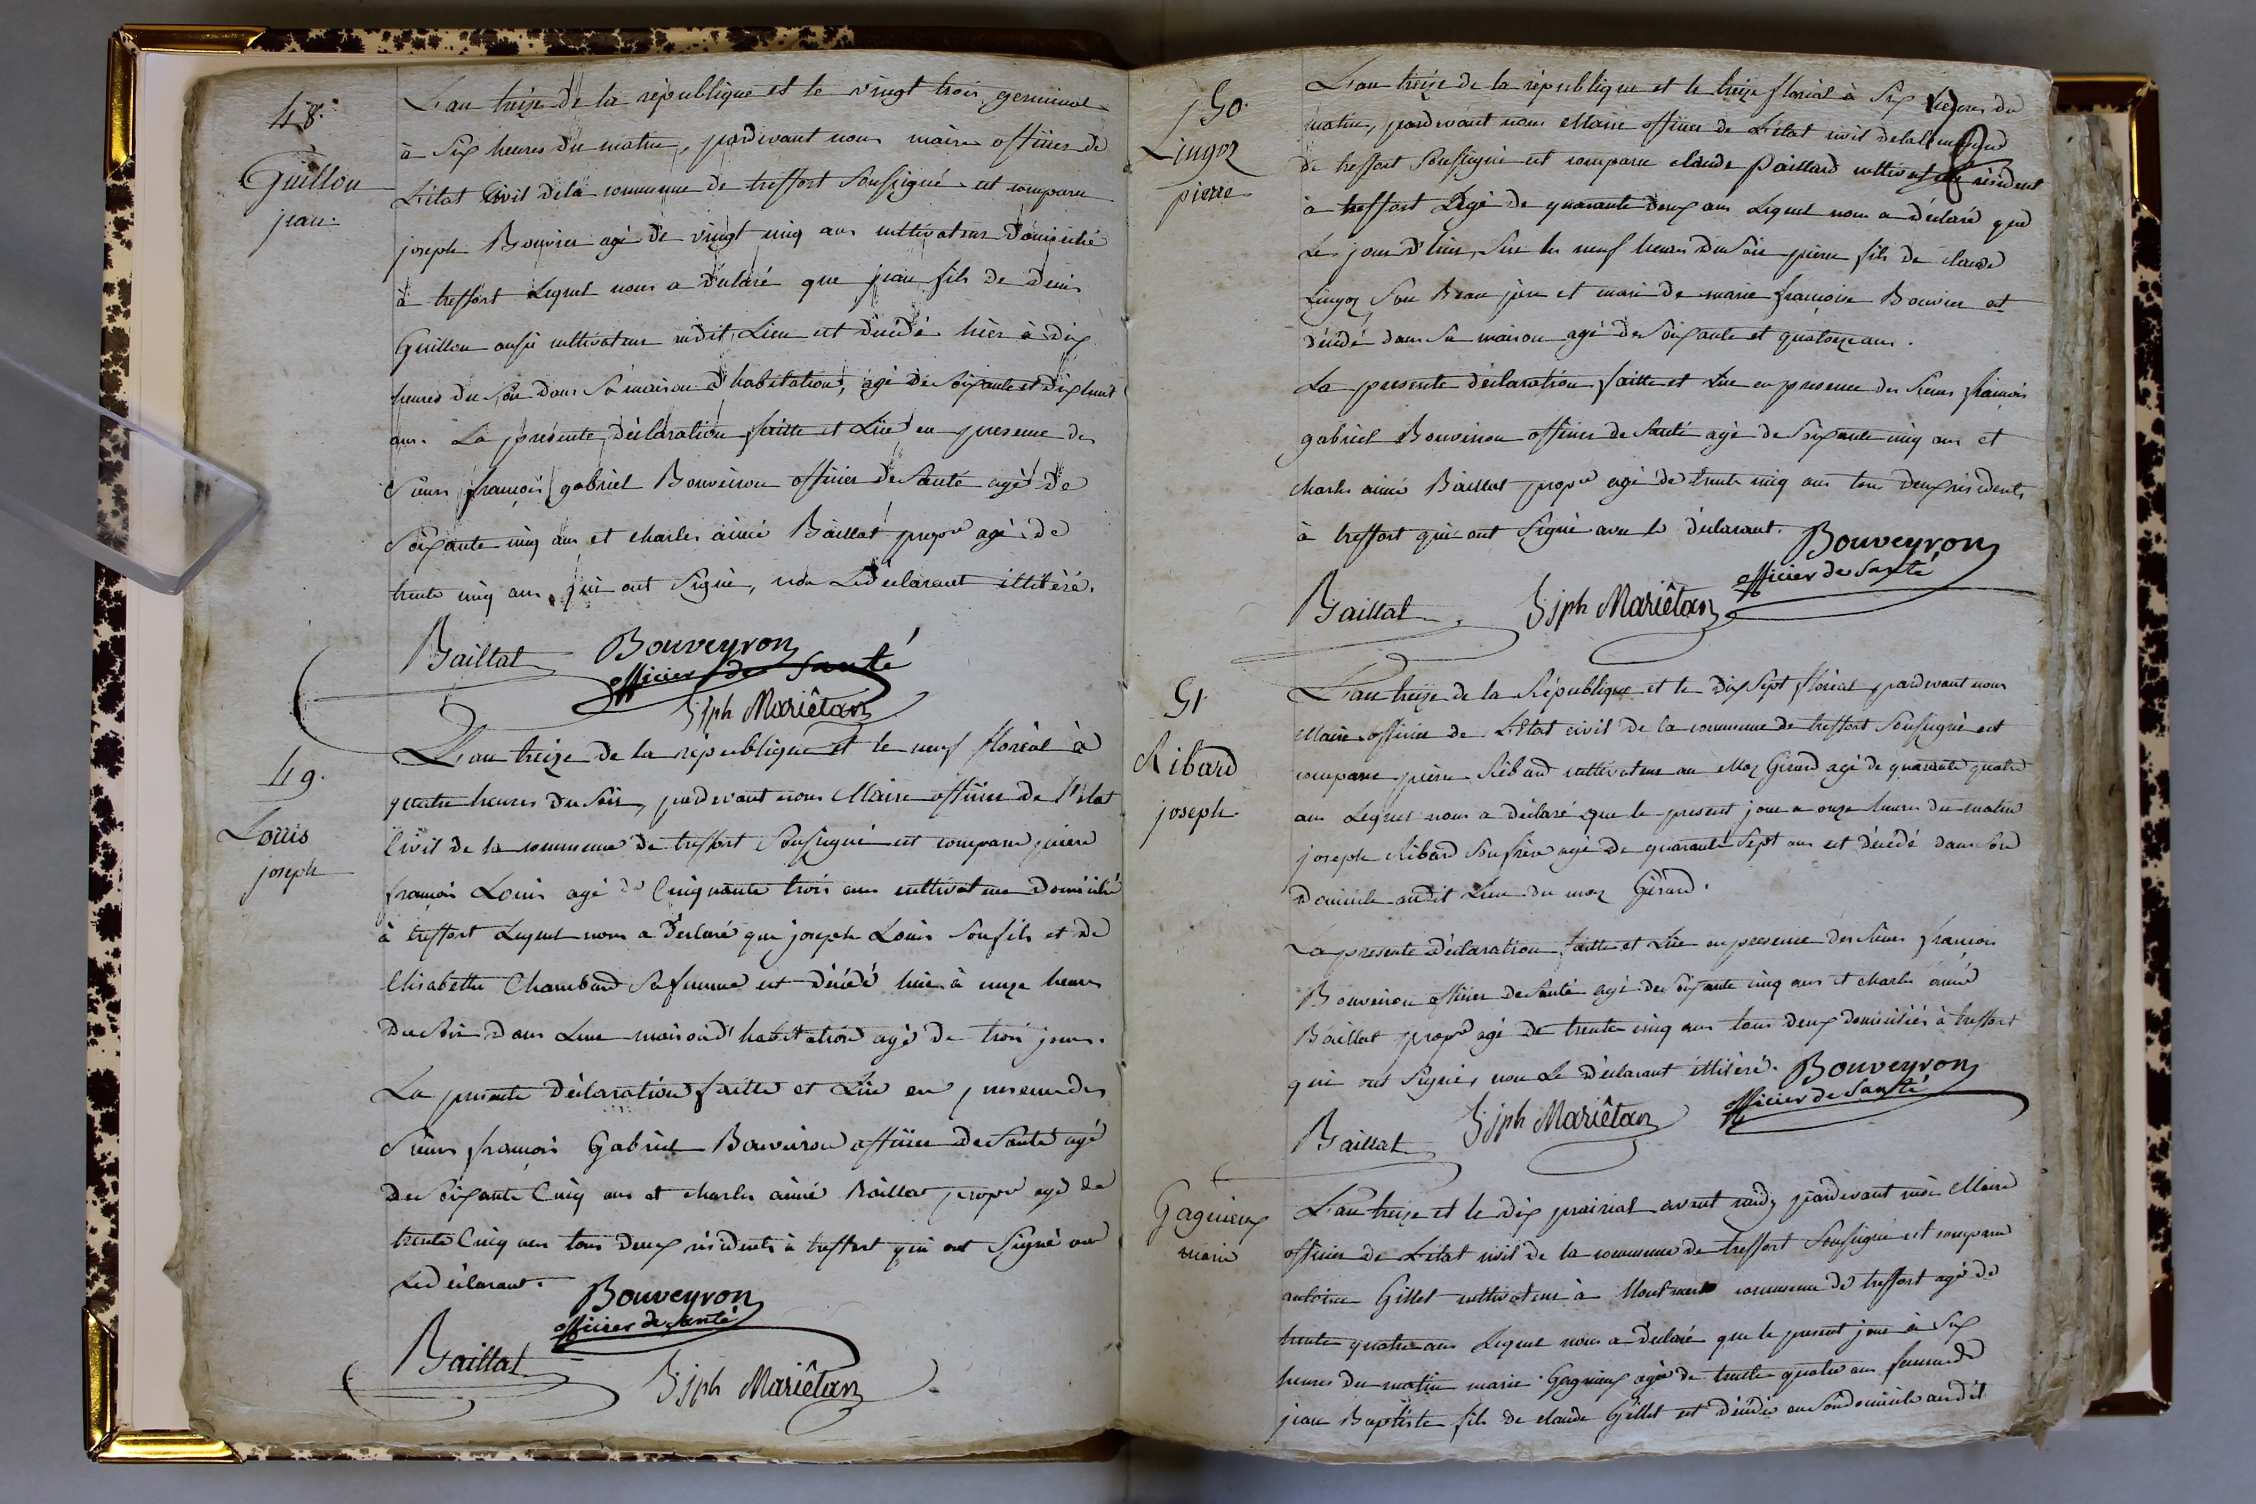 48.
Guillon
jean.
L'an treize de la république et le vingt trois germinal
à six heures du matin, pardevant nous maire officier de
L'état Civil dela commune de treffort Soussigné est comparu
joseph Bouvier agé de vingt cinq ans cultivateur domicilié
à treffort Lequel nous a déclaré que jean fils de denis
Guillon aussi cultivateur audit Lieu est décédé hier à dix
heures du Soir dans Sa maison d'habitation, agé de Soixante et dix huit
ans. La présente déclaration faitte et Lüe en presence des
Sieurs françois gabriel Bouveiron officier de Santé agé de
Soixante cinq ans et charles aimé Baillat propre agé de
trente cinq ans qui ont Signé, non Le déclarant illitéré.
Baillat Bouveyron
officier de Santé
Jph Mariêtan
49.
Louis
joseph
L'an treize de la république et le neuf floréal à
quatre heures du Soir, pardevant nous Maire officier de l'état
Civil de la commune de treffort Soussigné est comparu pierre
françois Louis agé de Cinquante trois ans cultivateur domicilié
à treffort Lequel nous a déclaré que joseph Louis Son fils et de
Elisabethe Chambard Sa femme est décédé hier à onze heures
du Soir dans Leur maison d'habitation agé de trois jours.
La presente déclaration faitte et Lüe en presence des
Sieurs françois Gabriel Bouveiron officier de Santé agé
de Soixante Cinq ans et charles aimé Baillat propre agé de
trente Cinq ans tous deux résidents à treffort qui ont Signé avec
Le déclarant.
Bouveyron
officier de Santé
Baillat
Jph Mariêtan
50.
Lingoz
pierre
L'an treize de la république et le treize floréal à Six heures du
matin, pardevant nous Maire officier de L'état civil de la commune
de treffort Soussigné est comparu claude Paillard cultivateur résident
à treffort agé de quarante deux ans Lequel nous a déclaré que
Le jour d'hier, Sur les neuf heures du Soir pierre fils de claude
Lingoz Son Beau père et mari de marie françoise Bouvier est
décédé dans Sa maison agé de Soixante et quatorze ans.
La presente déclaration faitte et Lue en presence des Sieurs françois
gabriel Bouveiron officier de Santé agé de Soixante cinq ans et
charles aimé Baillat propre agé de trente cinq ans tous deux résidents
à treffort qui ont Signé avec le déclarant.
Bouveyron
officier de Santé
Baillat Jph Mariêtan
51.
Ribard
joseph
L'an treize de la République et le dix Sept floréal pardevant nous
Maire officier de L'Etat civil de la commune de treffort Soussigné est
comparu pierre Ribard cultivateur au Maz Gérard agé de quarante quatre
ans Lequel nous a déclaré que le present jour a onze heures du matin
joseph Ribard Son frère agé de quarante Sept ans est décédé dans Son
domicile audit Lieu du maz Gérard.
La presente déclaration faitte et Lüe en presence des Sieurs françois
Bouveiron officier de Santé agé de Soixante cinq ans et charles aimé
Baillat propre agé de trente cinq ans tous deux domiciliés à treffort
qui ont Signé, non Le déclarant illiséré.
Bouveyron
officier de Santé
Baillat Jph Mariêtan
Gagnieux
marie
L'an treize et le dix prairial avant midy pardevant nous Maire
officier de L'état civil de la commune de treffort Soussigné est comparu
antoine Gillet cultivateur à commune de treffort agé de
trente quatre ans Lequel nous a déclaré que le present jour à Six
heures du matin marie Gagnieux agée de trente quatre ans femme de
jean Baptiste fils de claude Gillet est décédée en Son domicile audit